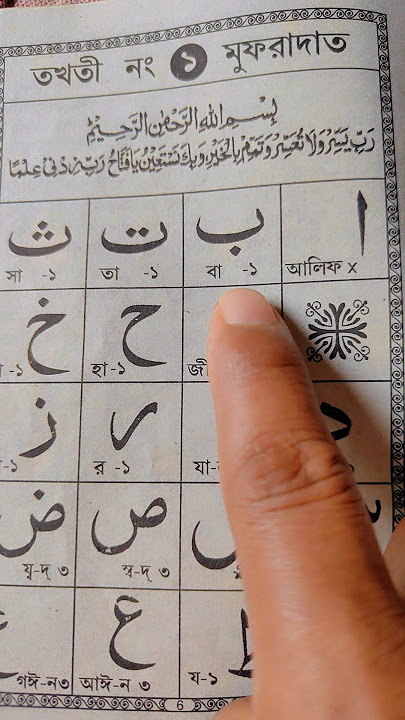 তখতী নং ১ মুফরাদাত
بِسْمِ اللهِ الرَّحْمٰنِ الرَّحِيْمِ
رَبِّ يَسِّرْ وَلَا تُعَسِّرْ وَتَمِّمْ بِالْخَيْرِ وَبِكَ نَسْتَعِيْنُ يَا فَتَّاحُ رَبِّ زِدْنِىْ عِلْمًا
ا ب ت ث
সা -১ তা -১ বা -১ আলিফ x
ح خ
-১ হা-১ জী
ر ز
-১ র -১ যা-
ص ض
য্ব-দ্ ৩ স্ব-দ্ ৩
ع
গঈ-ন৩ আঈ-ন ৩ য-১
6